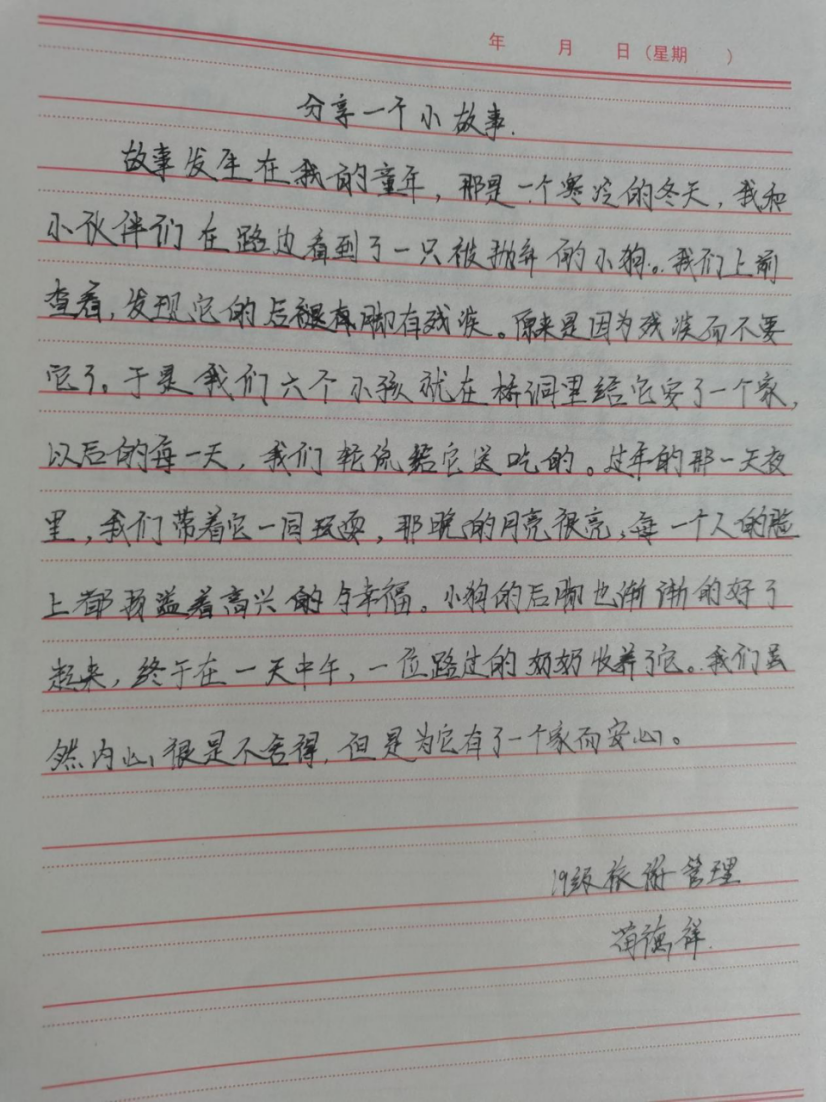 年 月 日（星期 ）
分享一个小故事.
故事发生在我的童年，那是一个寒冷的冬天，我和
小伙伴们在路边看到了一只被抛弃的小狗。我们上前
查看，发现它的后脚有残疾。原来是因为残疾而不要
它了。于是我们六个小孩就在桥洞里给它安了一个家，
以后的每一天，我们轮流给它送吃的。过年的那一天夜
里，我们带着它一同玩耍，那晚的月亮很亮，每一个人的脸
上都洋溢着高兴的与幸福。小狗的后脚也渐渐的好了
起来，终于在一天中午，一位路过的奶奶收养了它。我们虽
然内心很是不舍得，但是为它有了一个家而安心。
19级旅游管理
苗德祥.